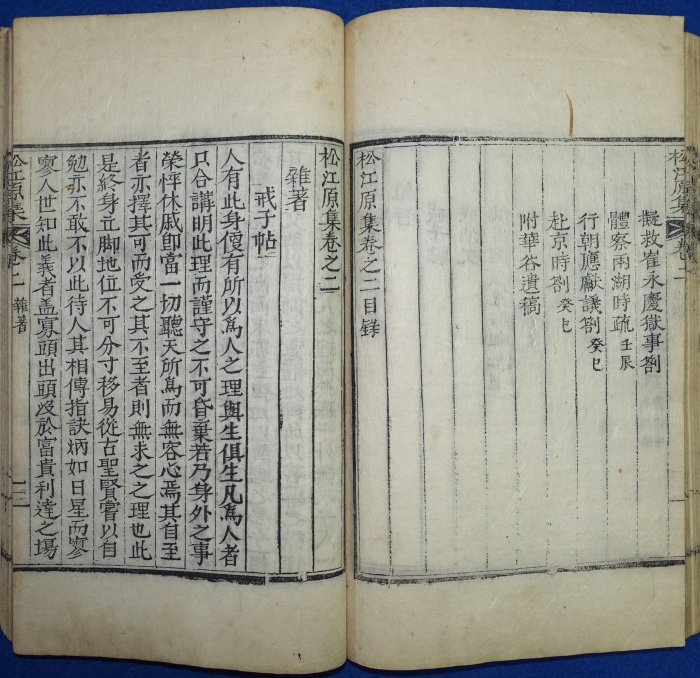 松江原集 卷二
擬救崔永慶獄事劄
體察兩湖時疏 壬辰
行朝應獻議劄 癸巳
赴京時劄 癸巳
附華谷遺稿
松江原集卷之二目錄
松江原集卷之二
雜著
戒子帖
人有此身便有所以爲人之理與生俱生凡爲人者
只合講明此理而謹守之不可昏棄若乃身外之事
榮悴休戚卽當一切聽天所爲而無容心焉其自至
者亦擇其可而受之其不至者則無求之之理也此
是終身立脚地位不可分寸移易從古聖賢嘗以自
勉亦不敢不以此待人其相傳指訣炳如日星而寥
寥人世知此義者盖寡頭出頭沒於富貴利達之場
松江原集 卷二 雜著